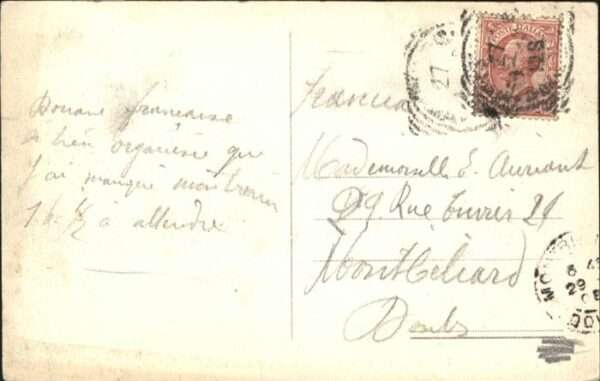 Douane française
si bien organisée que
j'ai manqué mon train
1 h. 1/2 à attendre
Francia
Mademoiselle E. Auriant
29, Rue Cuvier 21
Montbéliard
Doubs
27
29